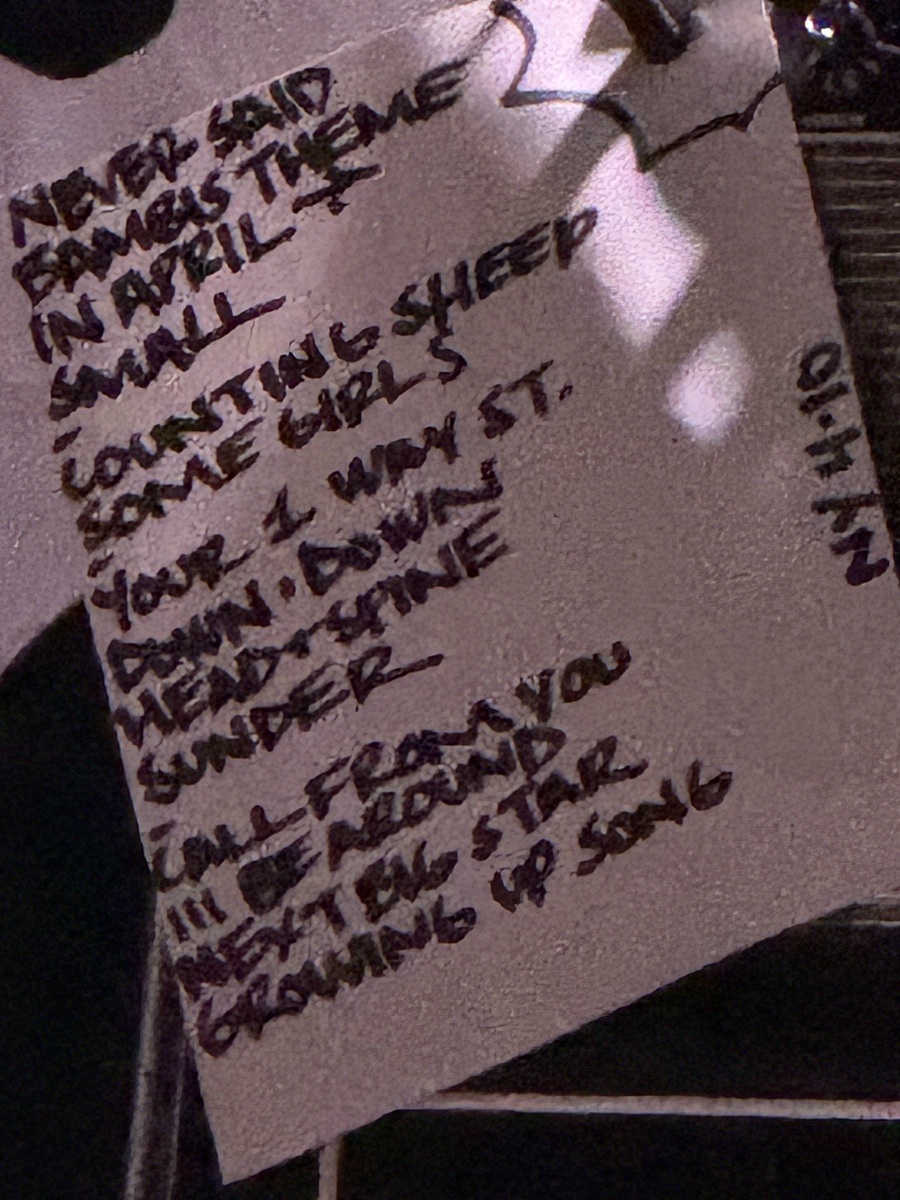 NEVER SAID
BAMBIS THEME
IN APRIL +
SMALL
-
COUNTING SHEEP
SOME GIRLS
-
YOUR 1 WAY ST.
DOWN, DOWN
HEAD + SPINE
SUNDER
-
CALL FROM YOU
I'll BE AROUND
NEXT BIG STAR
GROWING UP SONG
NY 4.10